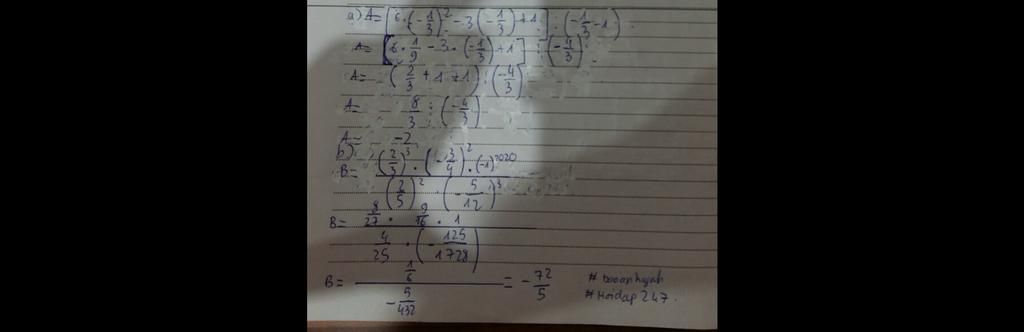 a) A = [6 . (-1/3)² - 3(-1/3) + 1] : (-1/3 - 1)
A = [6 . 1/9 - 3 . (-1/3) + 1] : (-4/3)
A = (2/3 + 1 + 1) : (-4/3)
A = 8/3 : (-4/3)
A = -2
b)
B = ((2/3)³ . (-3/4)² . (-1)²⁰²⁰) / ((2/5)² . (-5/12)³)
B = (8/27 . 9/16 . 1) / (4/25 . (-125/1728))
B = (1/6) / (-5/432) = -72/5
#Hoidap247.